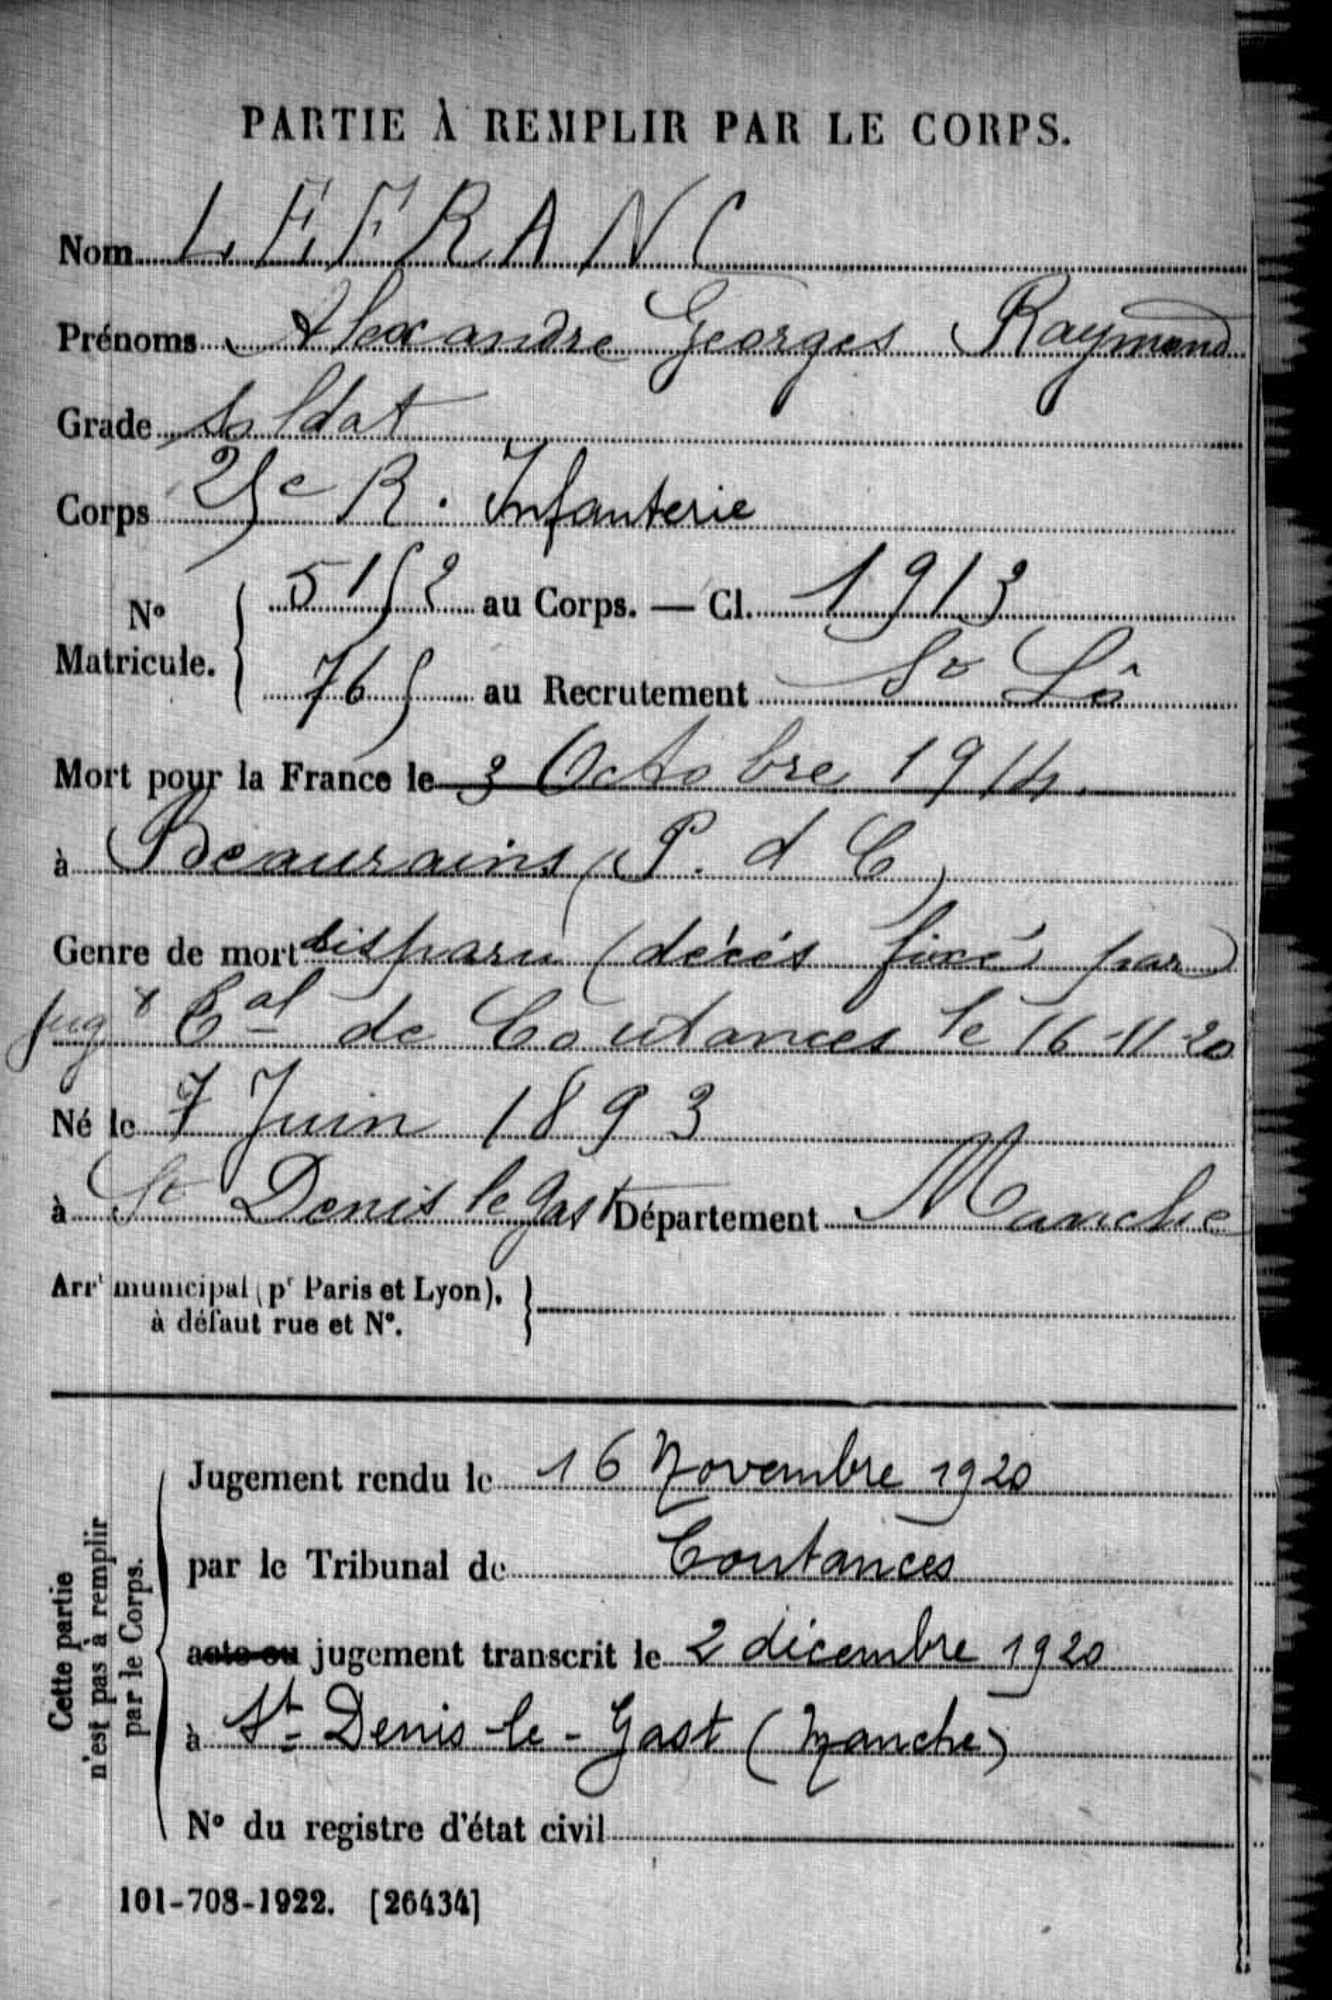 PARTIE À REMPLIR PAR LE CORPS.
Nom LEFRANC
Prénoms Alexandre Georges Raymond
Grade Soldat
Corps 25e R. Infanterie
N° Matricule. 5152 au Corps. — Cl. 1913
765 au Recrutement St Lô
Mort pour la France le 3 Octobre 1914.
à Beaurains (P. d C)
Genre de mort disparu (décés fixé par
jugt Cal de Coutances le 16-11-20
Né le 7 Juin 1893
à St Denis le Gast Département Manche
Arrt municipal (pr Paris et Lyon),
à défaut rue et N°.
Cette partie
n'est pas à remplir
par le Corps.
Jugement rendu le 16 Novembre 1920
par le Tribunal de Coutances
acte ou jugement transcrit le 2 décembre 1920
à St-Denis-le-Gast (Manche)
N° du registre d'état civil
101-708-1922. [26434]